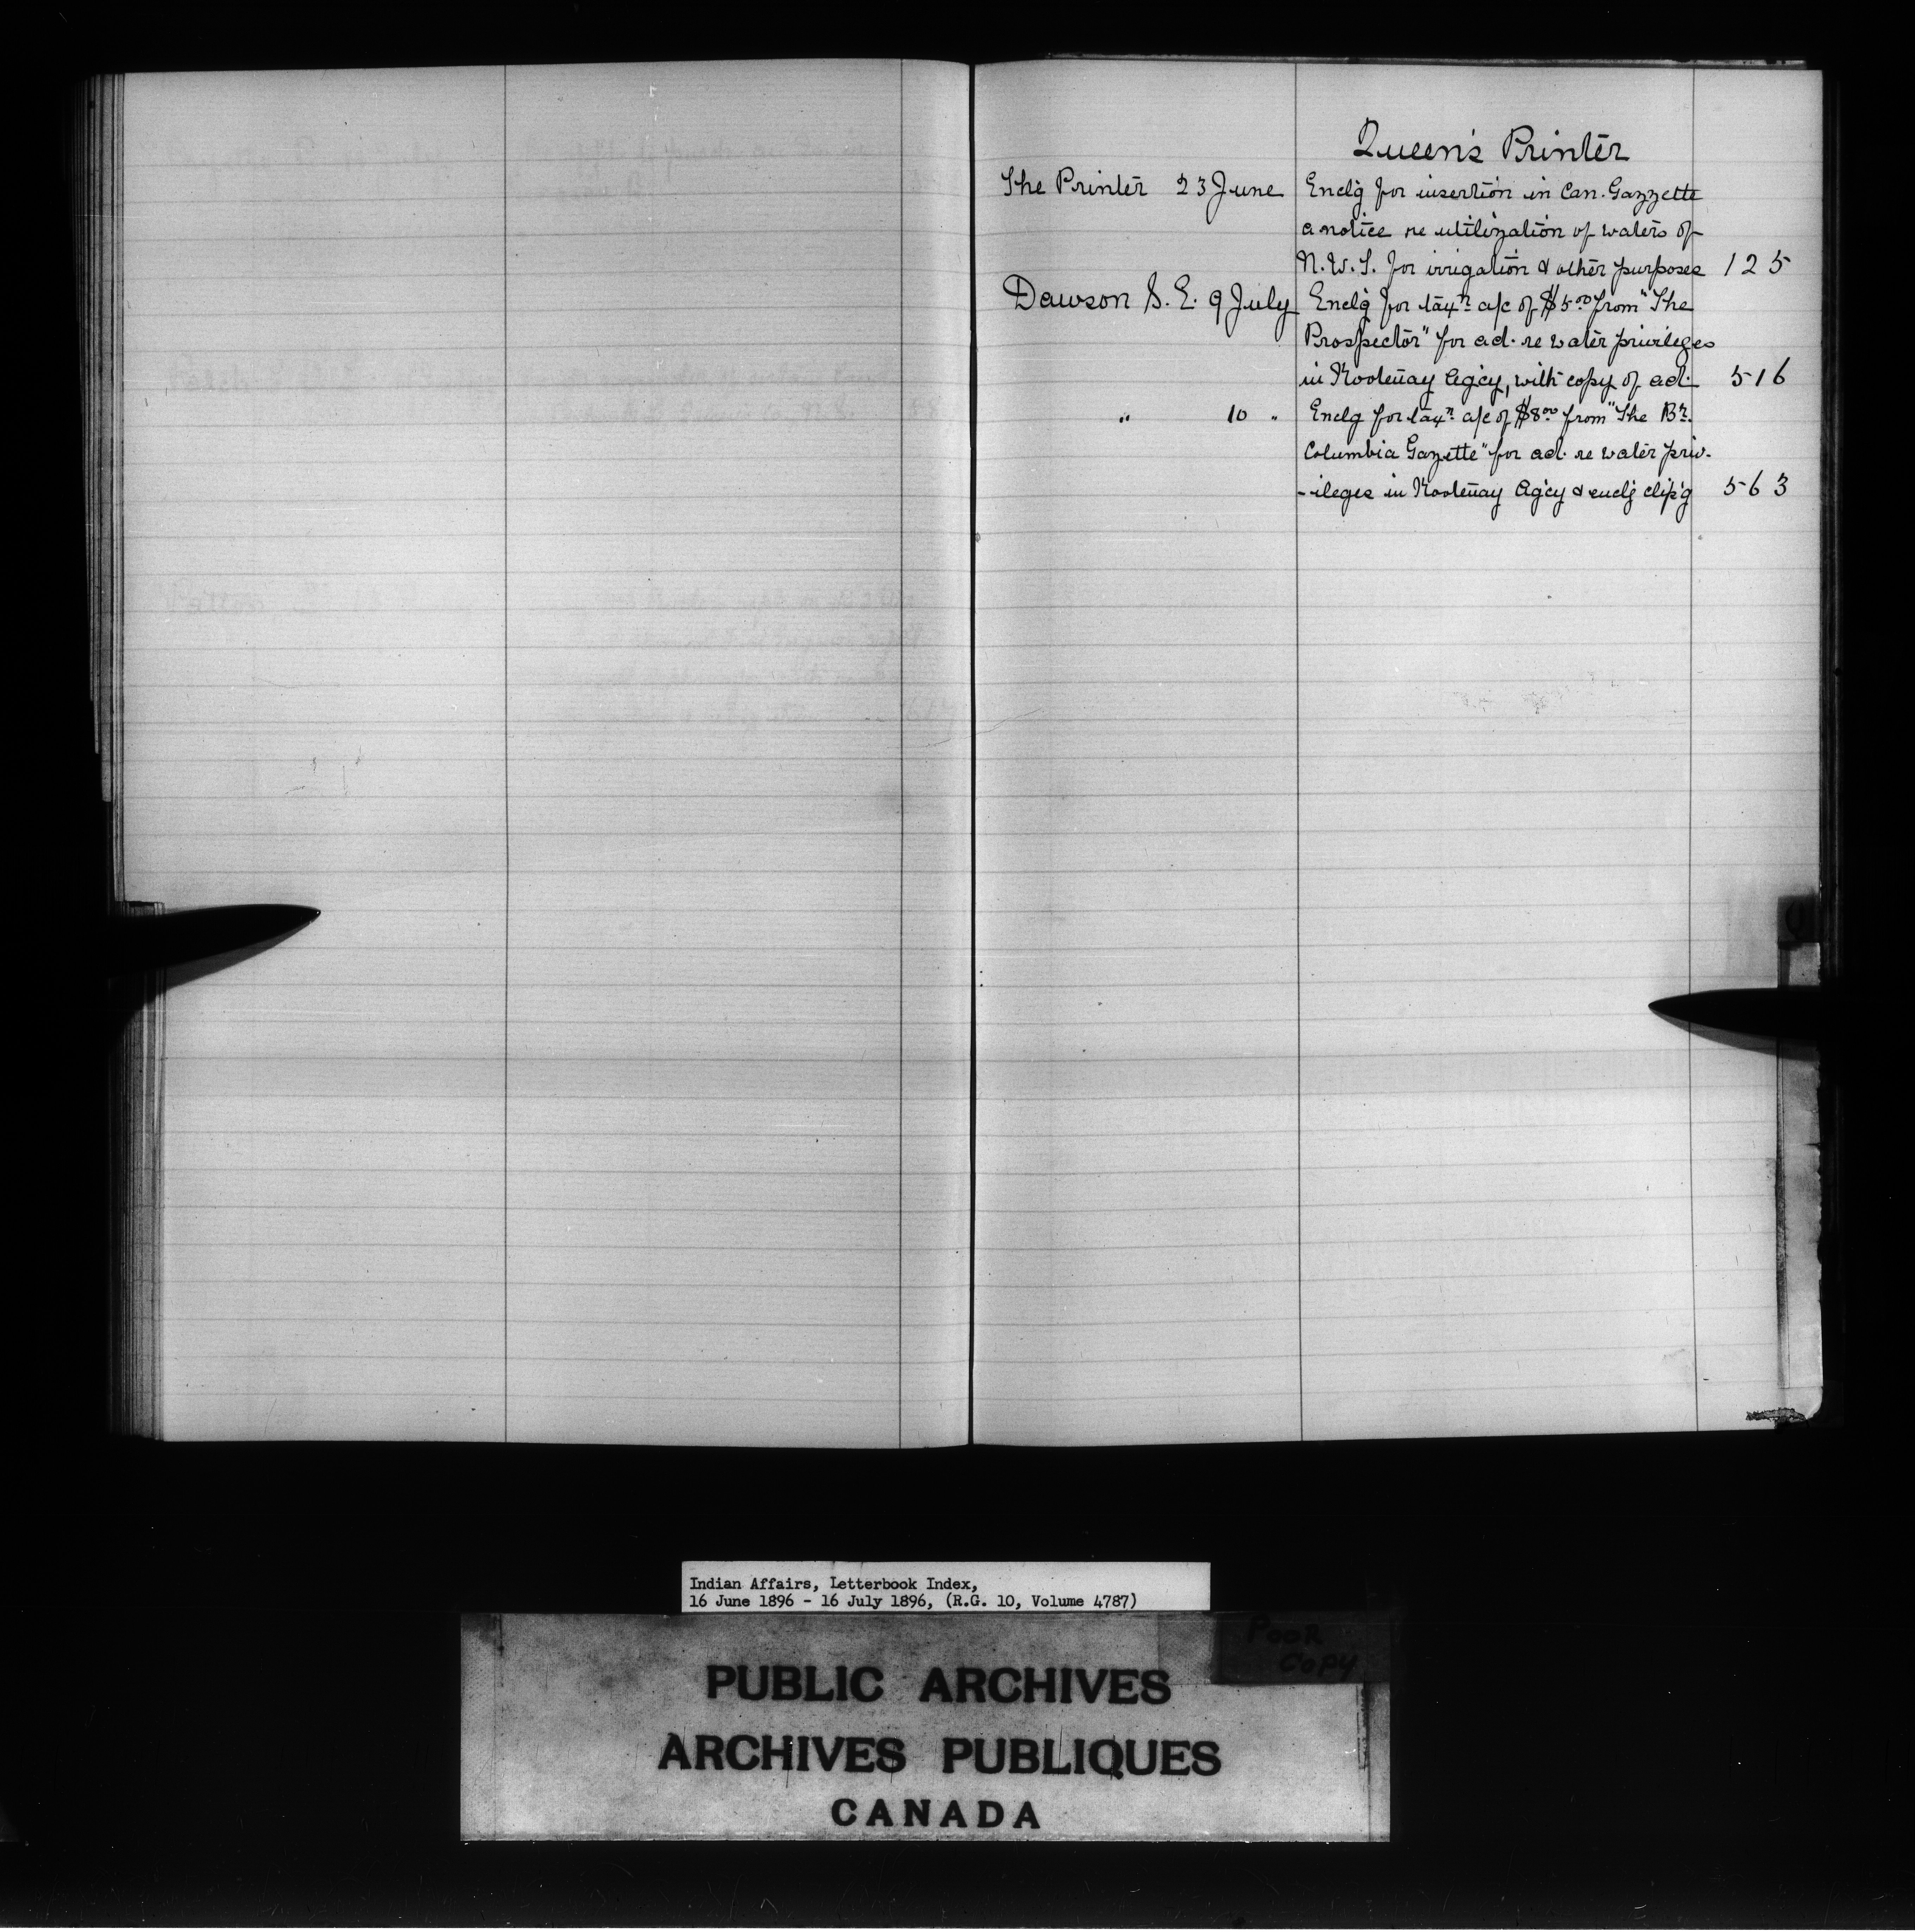 Queen's Printer
The Printer 23 June Enclg for insertion in Can. Gazzette
a notice re utilization of waters of
N.W.T. for irrigation & other purposes 125
Dawson S. E. 9 July Enclg for taxn a/c of $5.00 from "The
Prospector" for ad. re water privileges
in Kootenay Agcy, with copy of ad. 516
" 10 " Enclg for taxn a/c of $8.00 from "The Br.
Columbia Gazette" for ad. re water priv-
-ileges in Kootenay Agcy & enclg clip'g 563
Indian Affairs, Letterbook Index,
16 June 1896 - 16 July 1896, (R.G. 10, Volume 4787)
POOR
COPY
PUBLIC ARCHIVES
ARCHIVES PUBLIQUES
CANADA